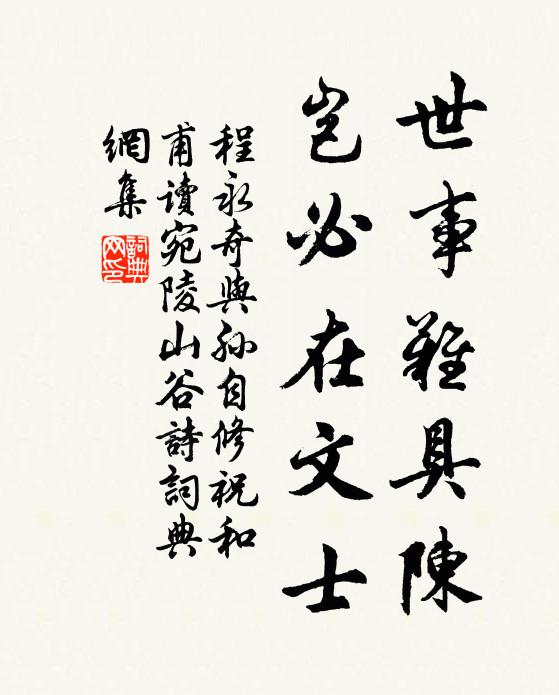 世事難具陳
豈必在文士
程永奇與孫自修祝和
甫讀宛陵山谷詩詞典
網集
詞典網印